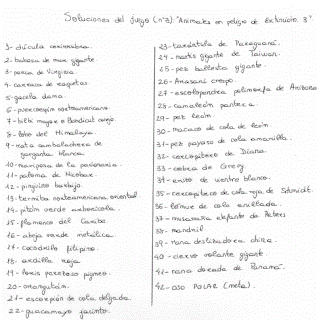 Soluciones del juego (nº3): "Animales en peligro de extinción 3"
1- chicula cornirrubra.
2- babosa de mar gigante
3- perca de Virginia.
4- carraca de raquetas.
5- gacela dama.
6- puercoespín norteamericano
7- bilby mayor o bandicut orejudo.
8- lobo del Himalaya.
9- rata cambalachera de
garganta blanca.
10- mariposa de la pasionaria.
11- paloma de Nicobar.
12- pingüino barbijo
13- termita norteamericana oriental
14- pitón verde
15- flamenco del Caribe.
16- abeja verde metálica.
17- cocodrilo filipino.
18- ardilla roja
19- loris perezoso pigmeo.
20- orangután.
21- escorpión de cola delgada.
22- guacamayo jacinto.
23- tarántula de Paraguaná.
24- mantis gigante de Taiwan.
25- pez ballesta gigante.
26- Anasani crespo.
27- escolopendra polimorfa de Arizona
28- camaleón pantera.
29- pez león.
30- macaco de cola de león
31- pez payaso de cola amarilla.
32- cercopiteco de Diana.
33- cebra de Grevy.
34- erizo de vientre blanco.
35- cercopiteco de cola roja de Schmidt.
36- lémur de cola anillada.
37- musaraña elefante de Peters
38- mandril.
39- rana deslizadora china.
40- ciervo volante gigante.
41- rana dorada de Panamá.
42- oso POLAR (meta).